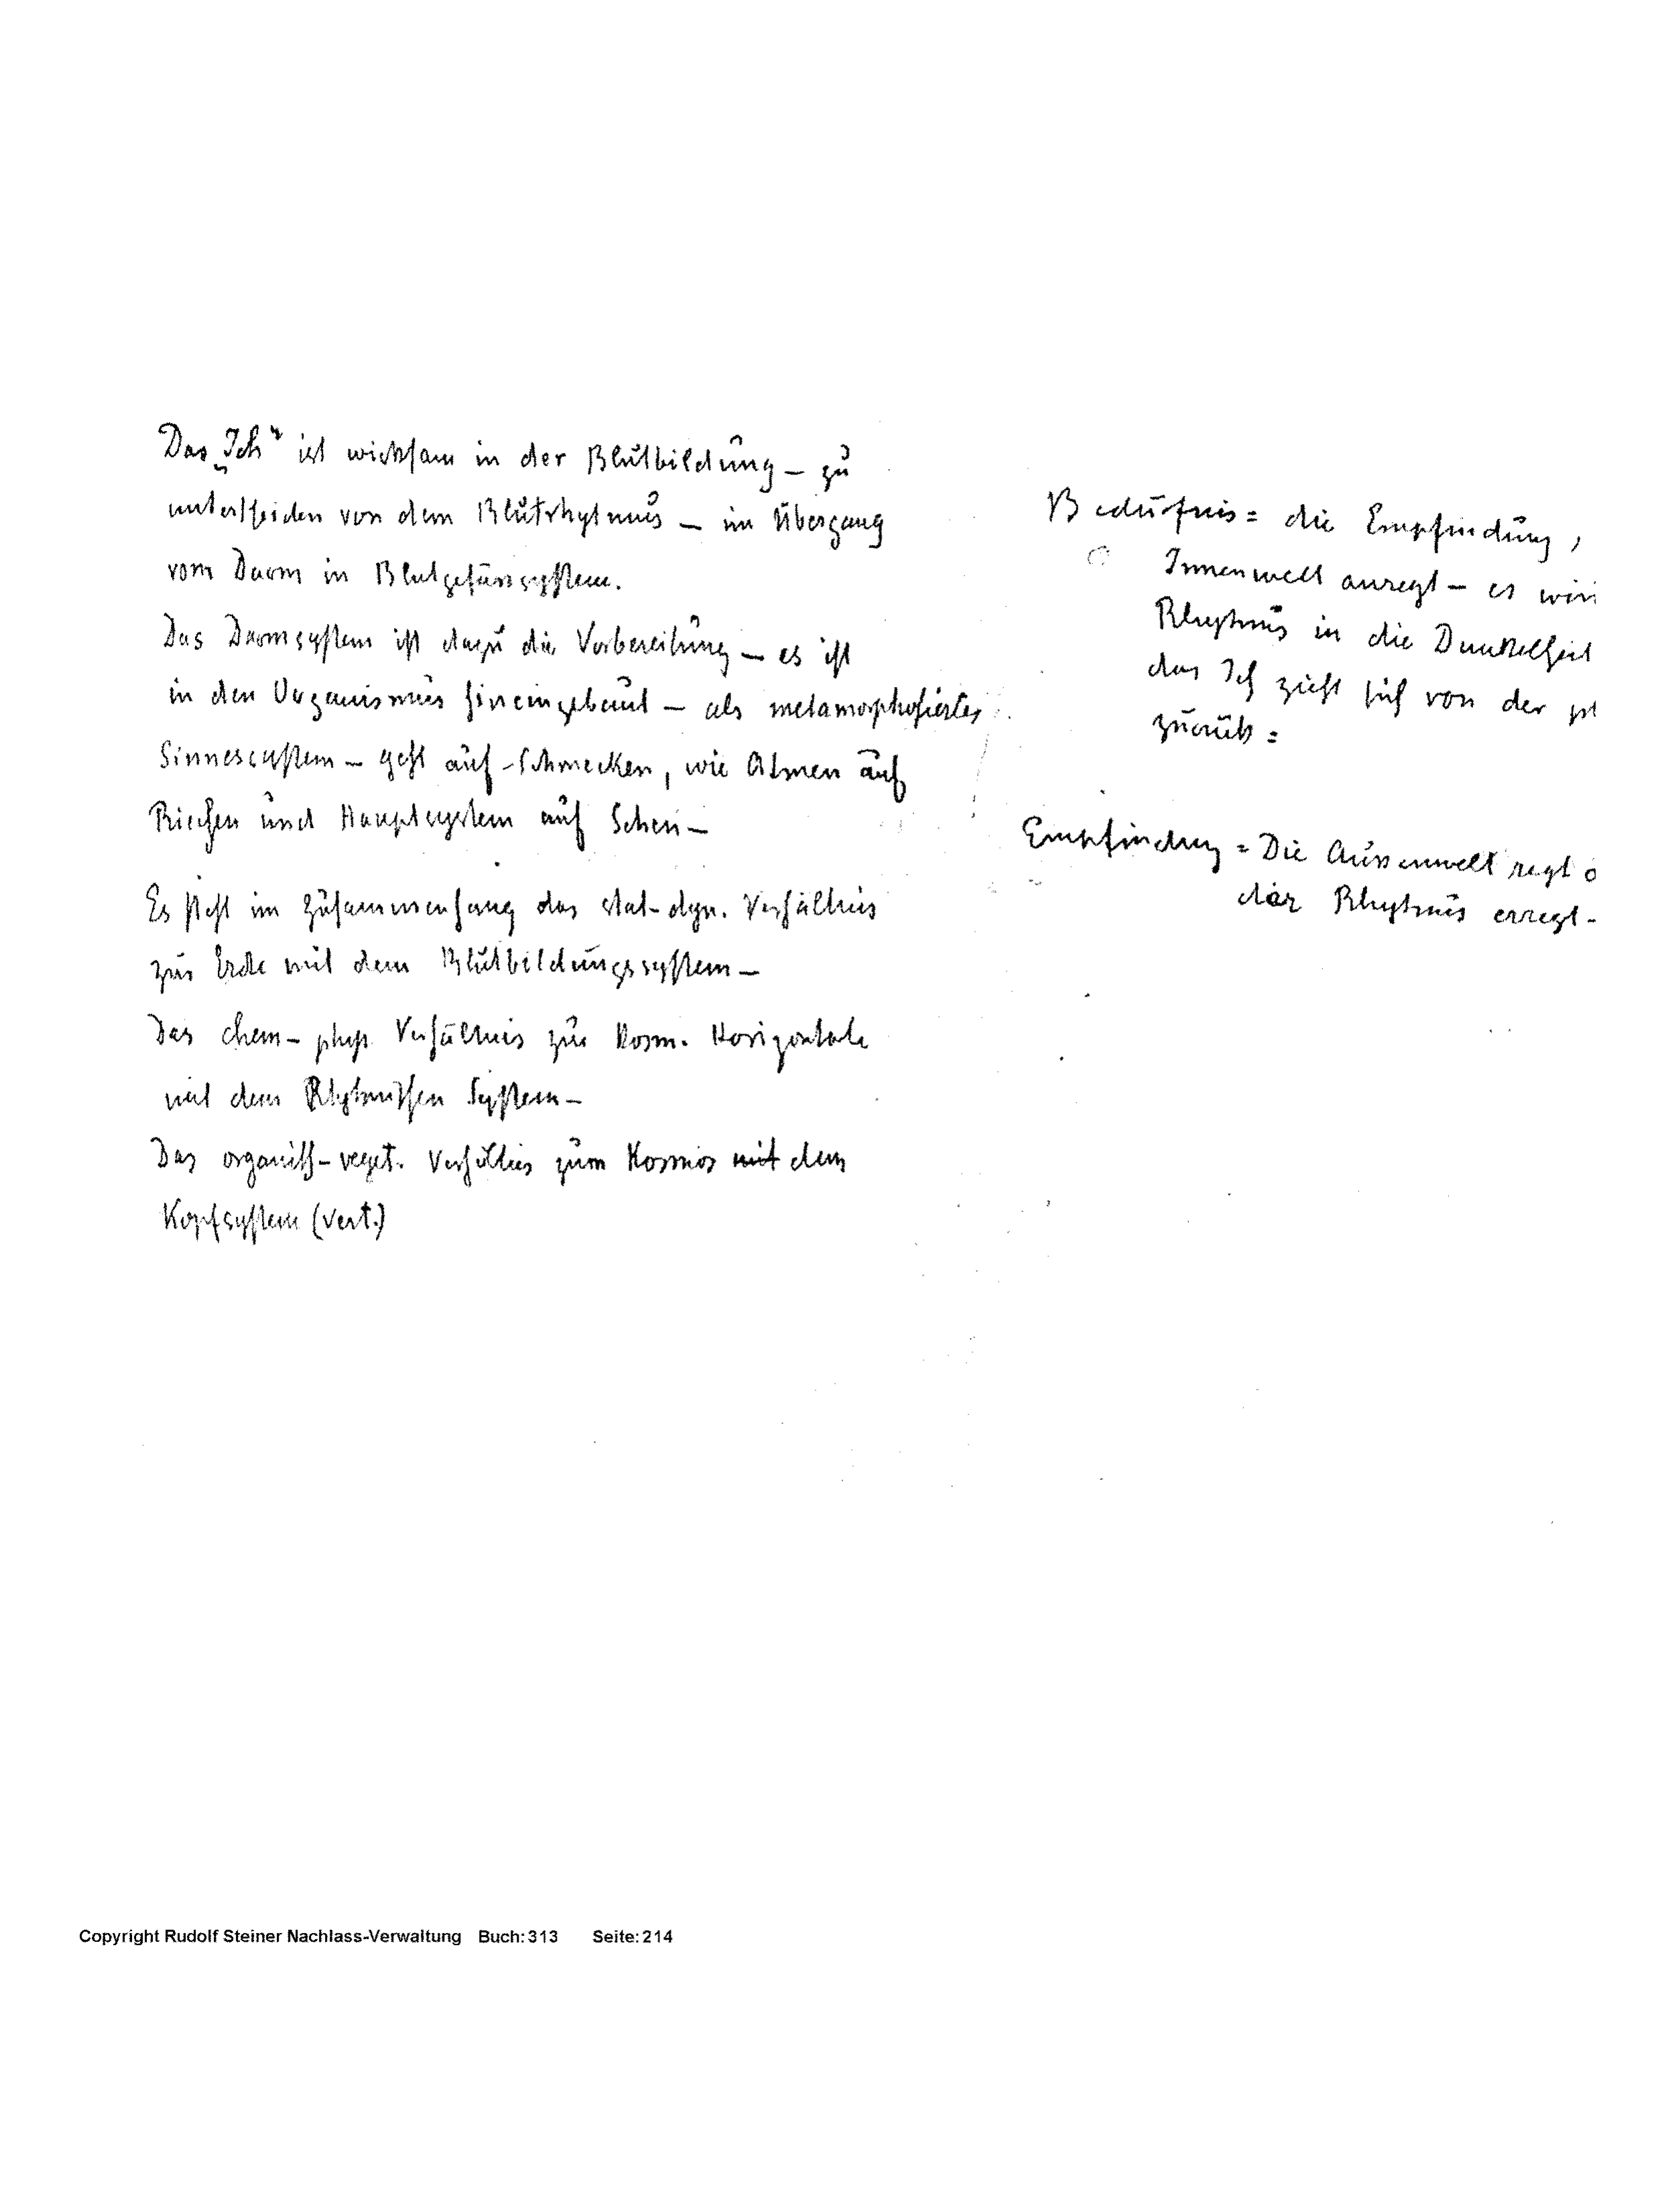 Das „Ich“ ist wirksam in der Blutbildung – zu
unterscheiden von dem Blutrhytmus – im Übergang
vom Darm in Blutgefässsystem.
Das Darmsystem ist dazu die Vorbereitung – es ist
in den Organismus hineingebaut – als metamorphosiertes
Sinnessystem – geht auf Schmecken, wie Atmen auf
Riechen und Hauptsystem auf Sehen –
Es steht im Zusammenhang das stat-dyn. Verhältnis
zur Erde mit dem Blutbildungssystem –
Das chem-phys. Verhältnis zur kosm. Horizontale
mit dem Rhytmischen System –
Das organisch-veget. Verhältnis zum Kosmos mit dem
Kopfsystem (vert.)
Bedürfnis = die Empfindung,
Innenwelt anregt – es wir
Rhytmus in die Dunkelheit
das Ich zieht sich von der
zurück =
Empfindung = Die Aussenwelt regt
der Rhytmus erregt –
Copyright Rudolf Steiner Nachlass-Verwaltung Buch: 313 Seite: 214